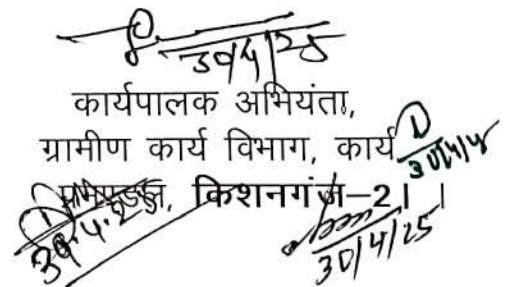 30/4/25
कार्यपालक अभियंता,
ग्रामीण कार्य विभाग, कार्य
30/4/25
प्रमण्डल, किशनगंज-2।
30.4.25
30/4/25